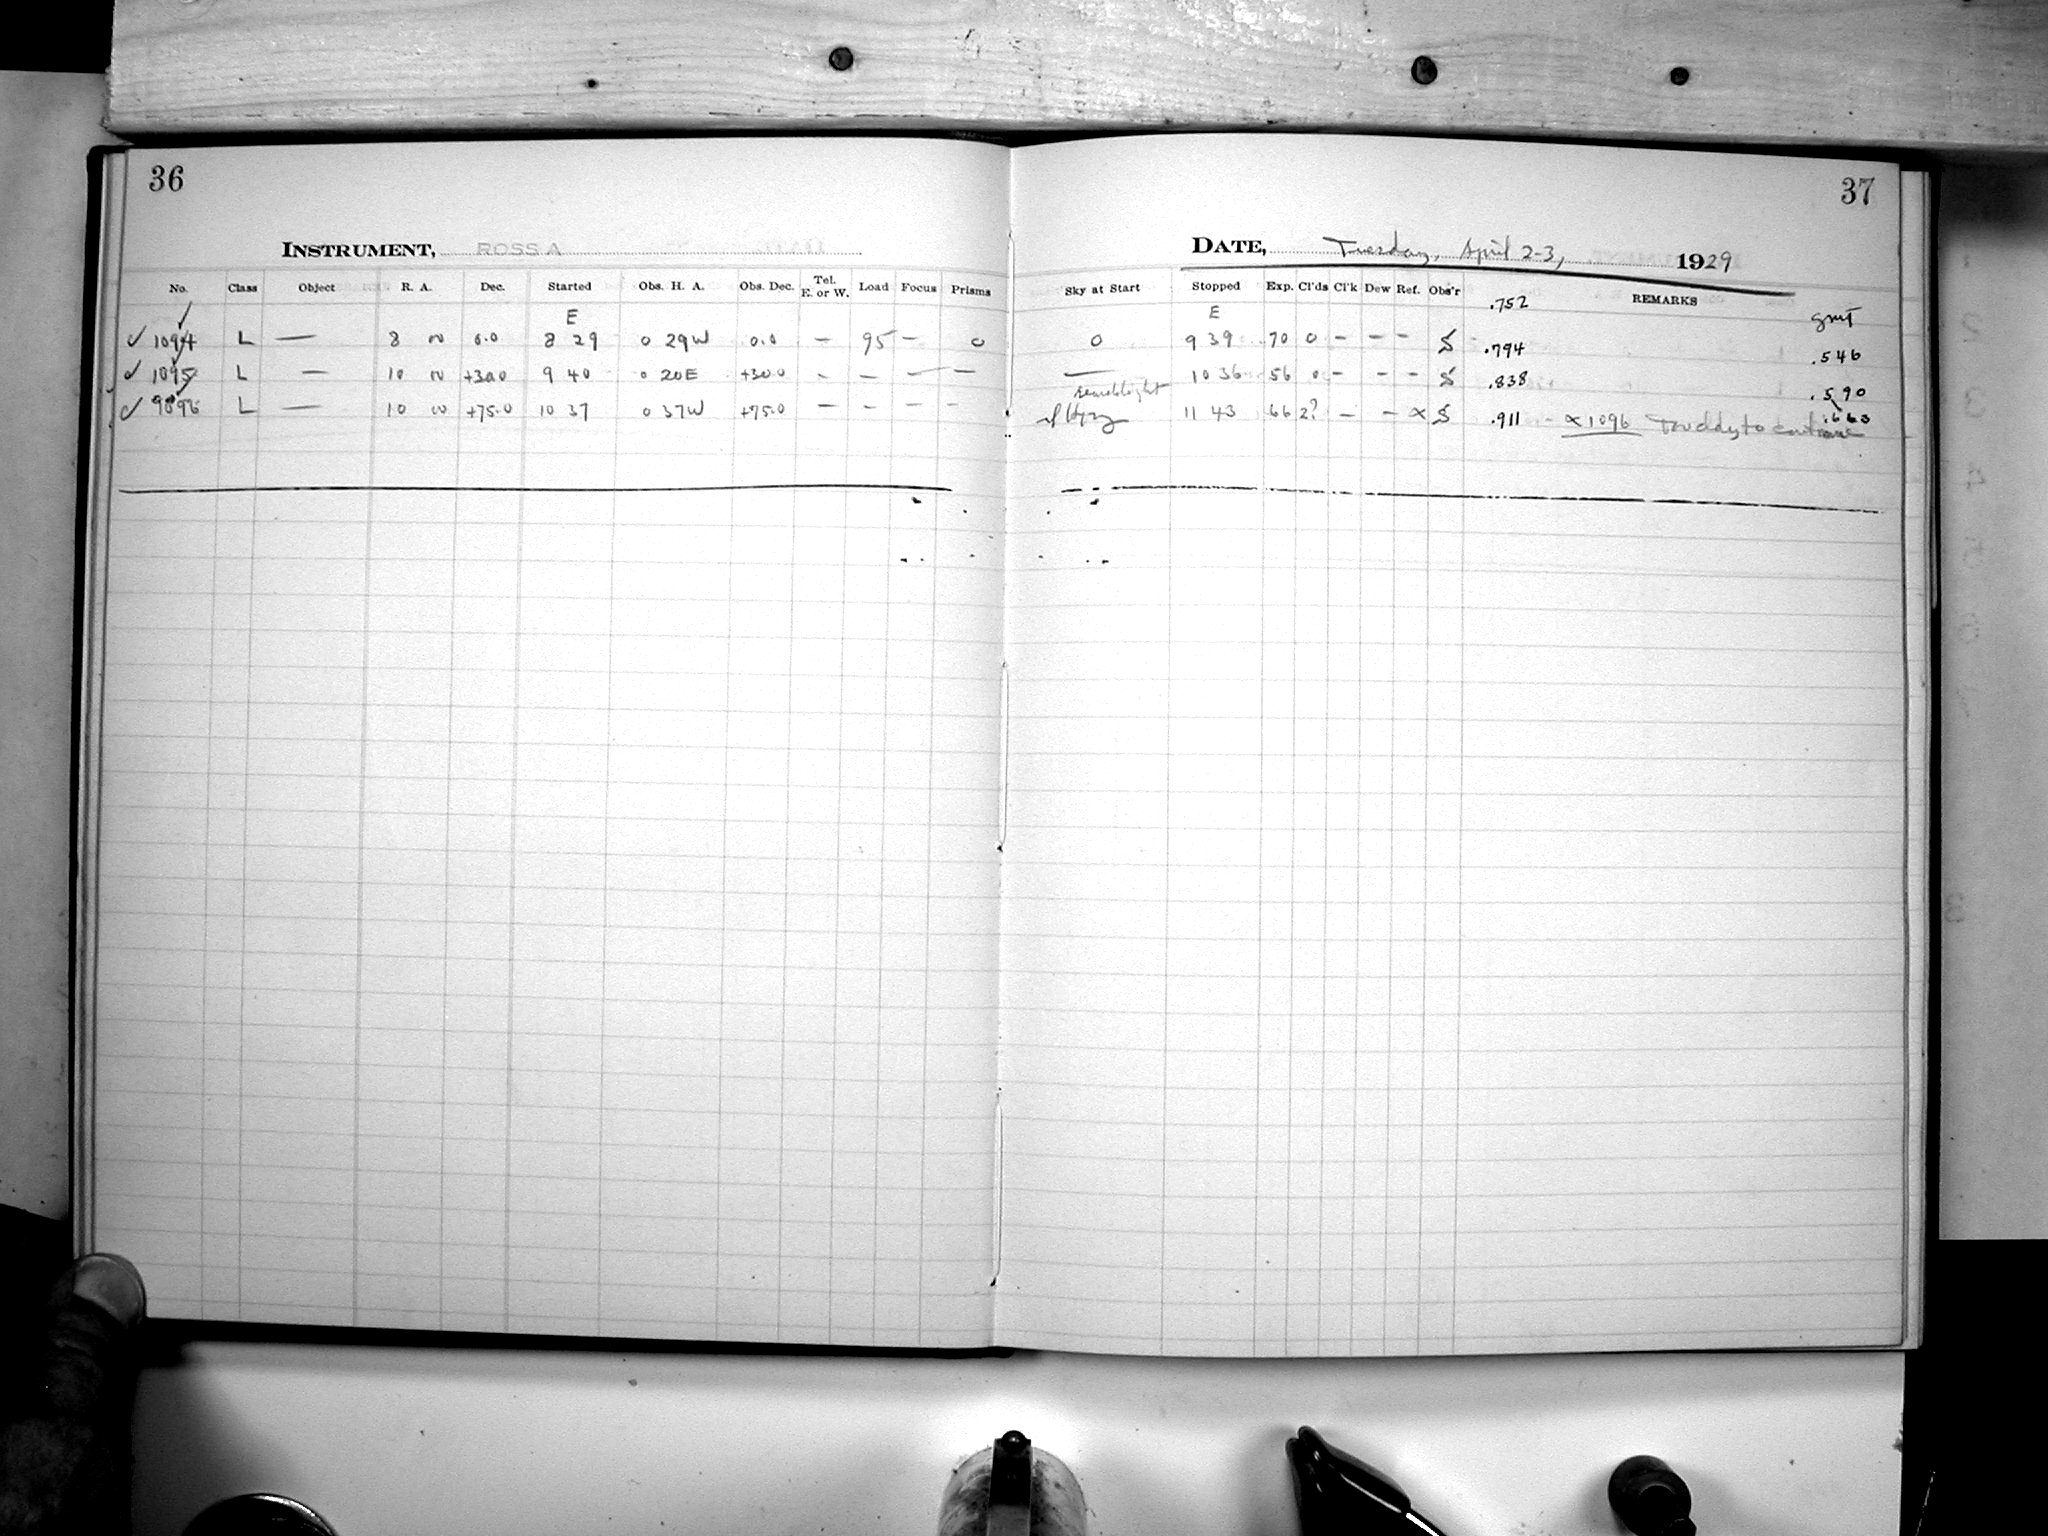 36
37
INSTRUMENT, ROSS A
DATE, Tuesday, April 2-3, 1929
No. Class Object R. A. Dec. Started Obs. H. A. Obs. Dec. Tel. E. or W. Load Focus Prisms Sky at Start Stopped Exp. Cl'ds Cl'k Dew Ref. Obs'r REMARKS
E E .752 GMT
✓ 1094 L — 8 0.0 8 29 0 29W 0.0 — 95 — 0 0 9 39 70 0 — — — S .794 .546
✓ 1095 L — 10 +30.0 9 40 0 20E +30.0 — — — — — 10 36 56 0 — — — S .838 .590
searchlight
✓ 9896 L — 10 +75.0 10 37 0 37W +75.0 — — — — 11 43 66 2? — — x S .911 — x 1096 Too cloudy to continue .663